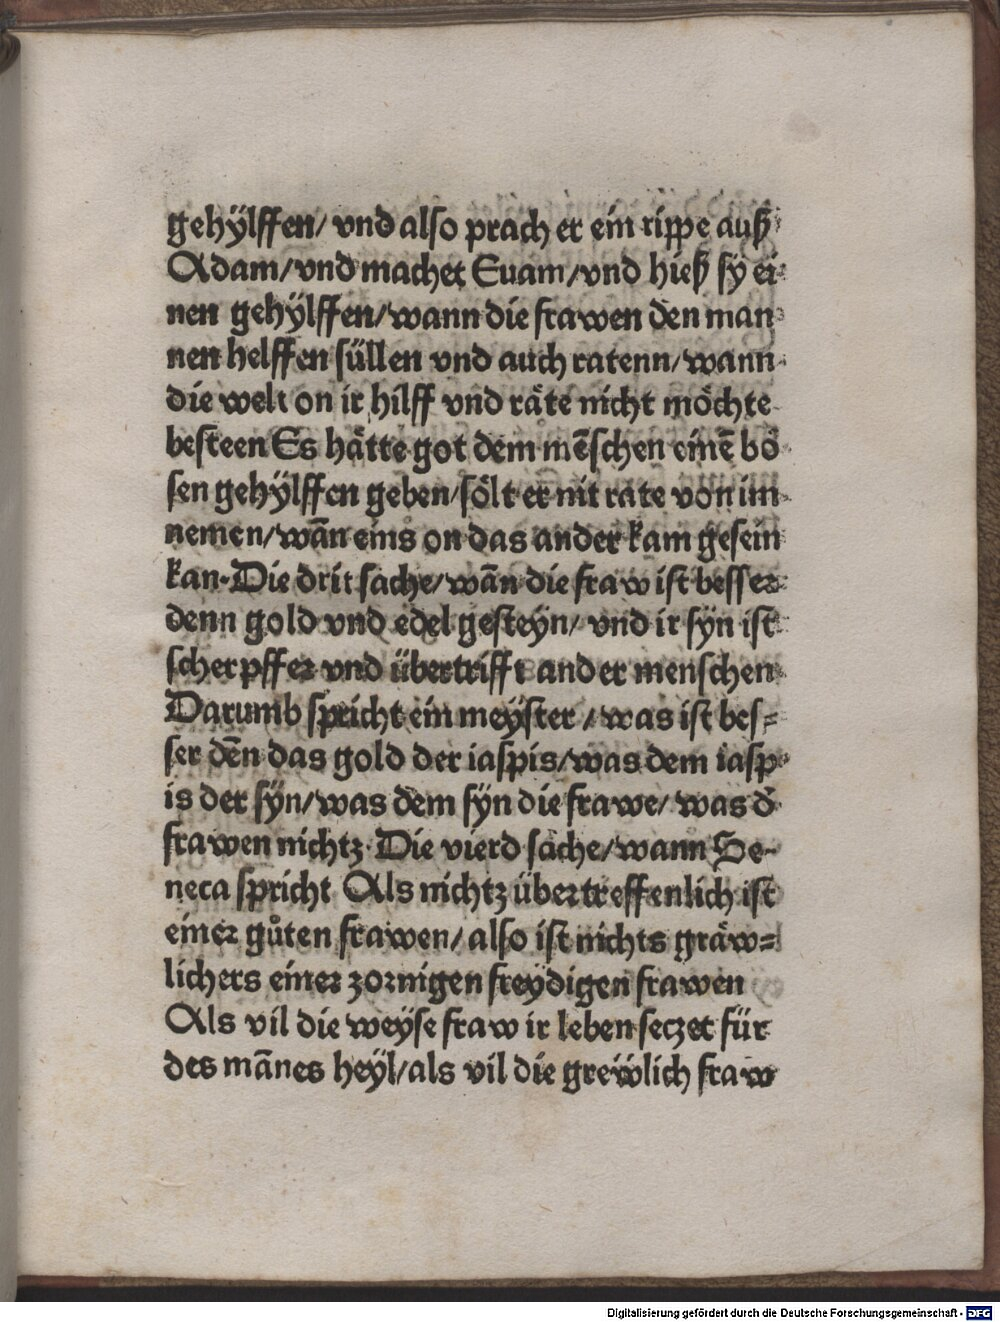 gehÿlffen/ vnd also prach er ein rippe auß
Adam/vnd machet Euam/vnd hieß sÿ ei
nen gehÿlffen/wann die frawen den man
nen helffen süllen vnd auch ratenn/wann
die welt on ir hilff vnd räte nicht möchte
besteen Es hätte got dem mēschen einē bö
sen gehÿlffen geben/sölt er nit rate von im
nemen/wān eins on das ander kam gesein
kan·Die drit sache/wān die fraw ist besser
denn gold vnd edel gesteÿn/ vnd ir sÿn ist
scherpffer vnd übertrifft ander menschen
Darumb spricht ein meÿster / was ist bes=
ser dēn das gold der iaspis/was dem iasp
is der sÿn/was dem sÿn die frawe/ was d̓
frawen nichtz·Die vierd sache/wann Se-
neca spricht Als nichtz übertreffenlich ist
einer gůten frawen/also ist nichts gräw=
lichers einer zornigen freydigen frawen
Als vil die weÿse fraw ir leben seczet für
des mānes heÿl/als vil die grewlich fraw
Digitalisierung gefördert durch die Deutsche Forschungsgemeinschaft - DFG